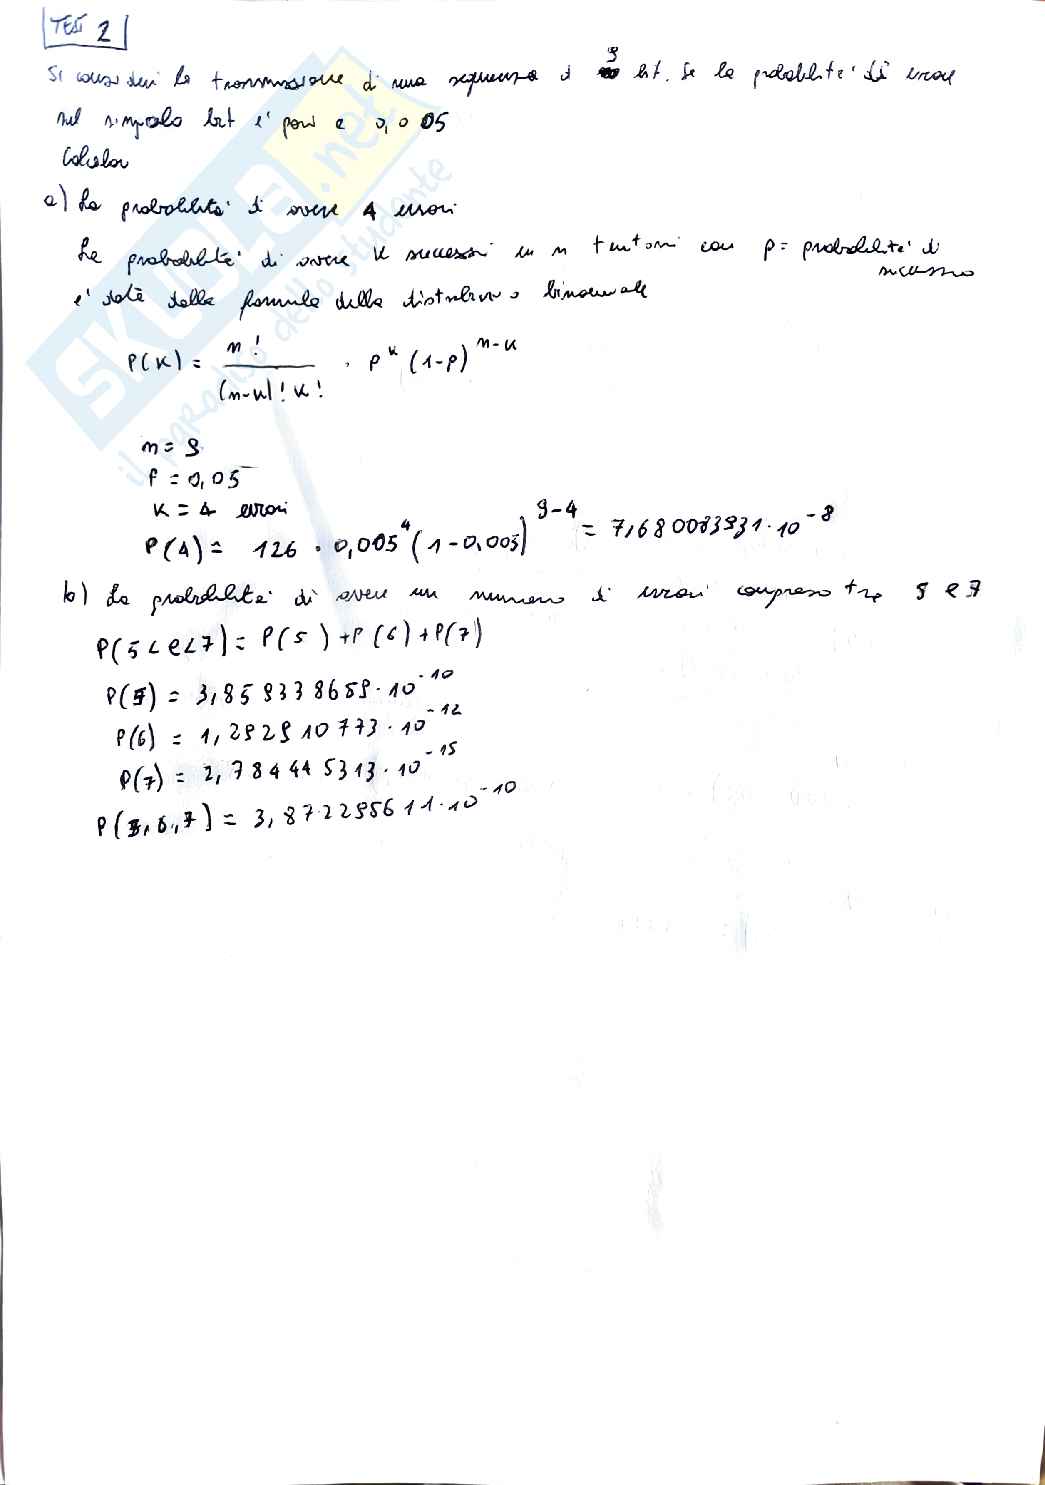 TEST 2
Si consideri la trasmissione di una sequenza di 9 bit. Se la probabilità di errore
nel singolo bit e' pari a 0,005
Calcolare
a) La probabilità di avere 4 errori
La probabilità di avere K successi in n tentativi con p = probabilità di
successo
e' data dalla formula della distribuzione binomiale
P(K) = n! / (n-k)! k! · p^k (1-p)^n-k
n = 9
P = 0,05
K = 4 errori
P(4) = 126 · 0,005^4 (1-0,005)^9-4 = 7,680083931·10^-8
b) La probabilità di avere un numero di errori compreso tra 5 e 7
P(5<e<7) = P(5)+P(6)+P(7)
P(5) = 3,859338659·10^-10
P(6) = 1,292910773·10^-12
P(7) = 2,784445313·10^-15
P(5,6,7) = 3,872295611·10^-10
SKUOLA.net
il paradiso dello studente